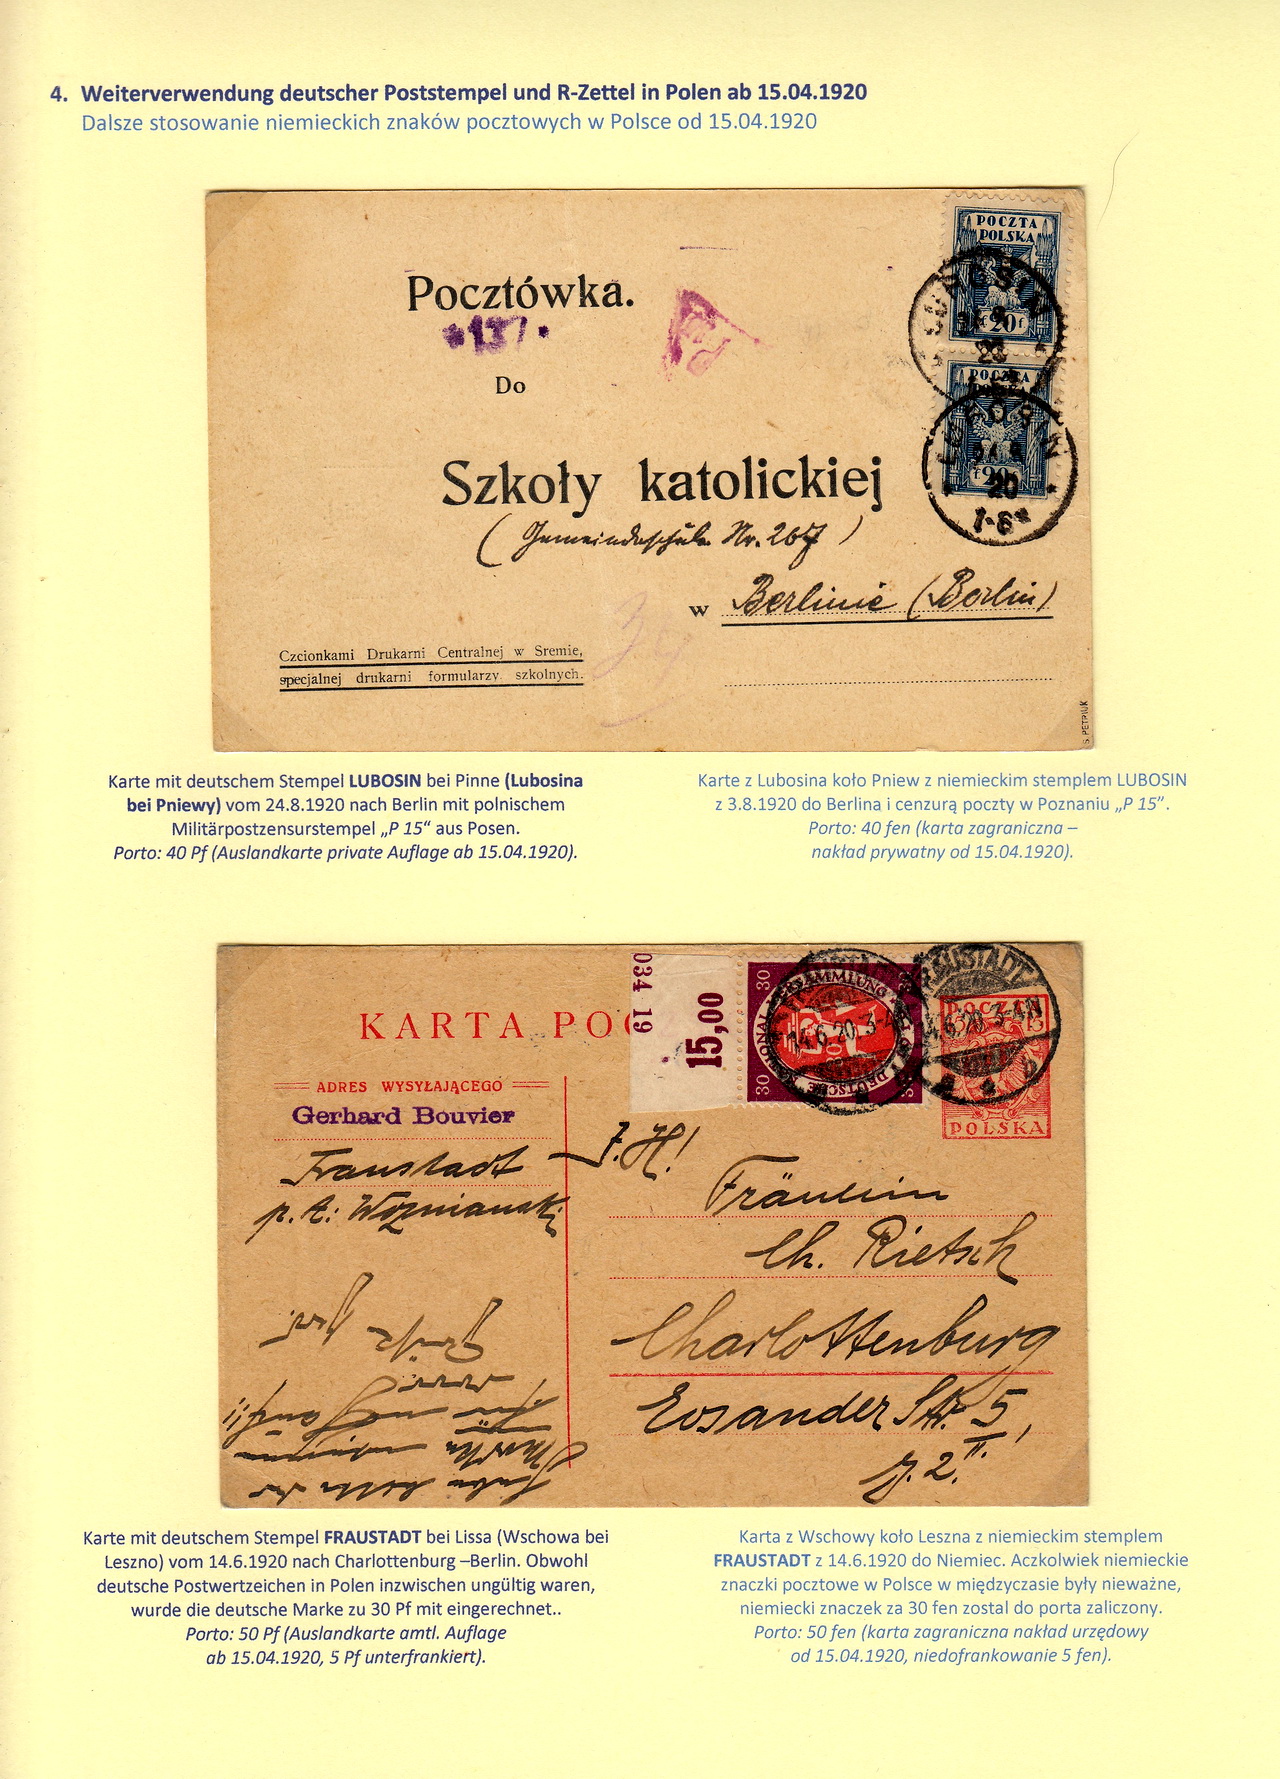 4. Weiterverwendung deutscher Poststempel und R-Zettel in Polen ab 15.04.1920
Dalsze stosowanie niemieckich znaków pocztowych w Polsce od 15.04.1920
POCZTA
POLSKA
20f
LUBOSIN
Pocztówka.
*137*
Do
POCZTA
LUBOSIN
20
Szkoły katolickiej
(Gemeindeschule Nr. 267)
w Berlinie (Berlin)
34
Czcionkami Drukarni Centralnej w Sremie,
specjalnej drukarni formularzy szkolnych.
S. PETRIUK
Karte mit deutschem Stempel LUBOSIN bei Pinne (Lubosina
bei Pniewy) vom 24.8.1920 nach Berlin mit polnischem
Militärpostzensurstempel „P 15“ aus Posen.
Porto: 40 Pf (Auslandkarte private Auflage ab 15.04.1920).
Karte z Lubosina koło Pniew z niemieckim stemplem LUBOSIN
z 3.8.1920 do Berlina i cenzurą poczty w Poznaniu „P 15”.
Porto: 40 fen (karta zagraniczna –
nakład prywatny od 15.04.1920).
034 19
15,00
30
30
DEUTSCHE NATIONALVERSAMMLUNG
14.6.20. 3-4
FRAUSTADT
14.6.20 3-4N
b
POCZTA
15
POLSKA
KARTA POC
ADRES WYSYŁAJĄCEGO
Gerhard Bouvier
Fraustadt
p. A: Woznianski
Z. H!
Fräulein
Ch. Rietsch
Charlottenburg
Eosander Str. 5,
g. 2. II.
Karte mit deutschem Stempel FRAUSTADT bei Lissa (Wschowa bei
Leszno) vom 14.6.1920 nach Charlottenburg –Berlin. Obwohl
deutsche Postwertzeichen in Polen inzwischen ungültig waren,
wurde die deutsche Marke zu 30 Pf mit eingerechnet..
Porto: 50 Pf (Auslandkarte amtl. Auflage
ab 15.04.1920, 5 Pf unterfrankiert).
Karta z Wschowy koło Leszna z niemieckim stemplem
FRAUSTADT z 14.6.1920 do Niemiec. Aczkolwiek niemieckie
znaczki pocztowe w Polsce w międzyczasie były nieważne,
niemiecki znaczek za 30 fen zostal do porta zaliczony.
Porto: 50 fen (karta zagraniczna nakład urzędowy
od 15.04.1920, niedofrankowanie 5 fen).